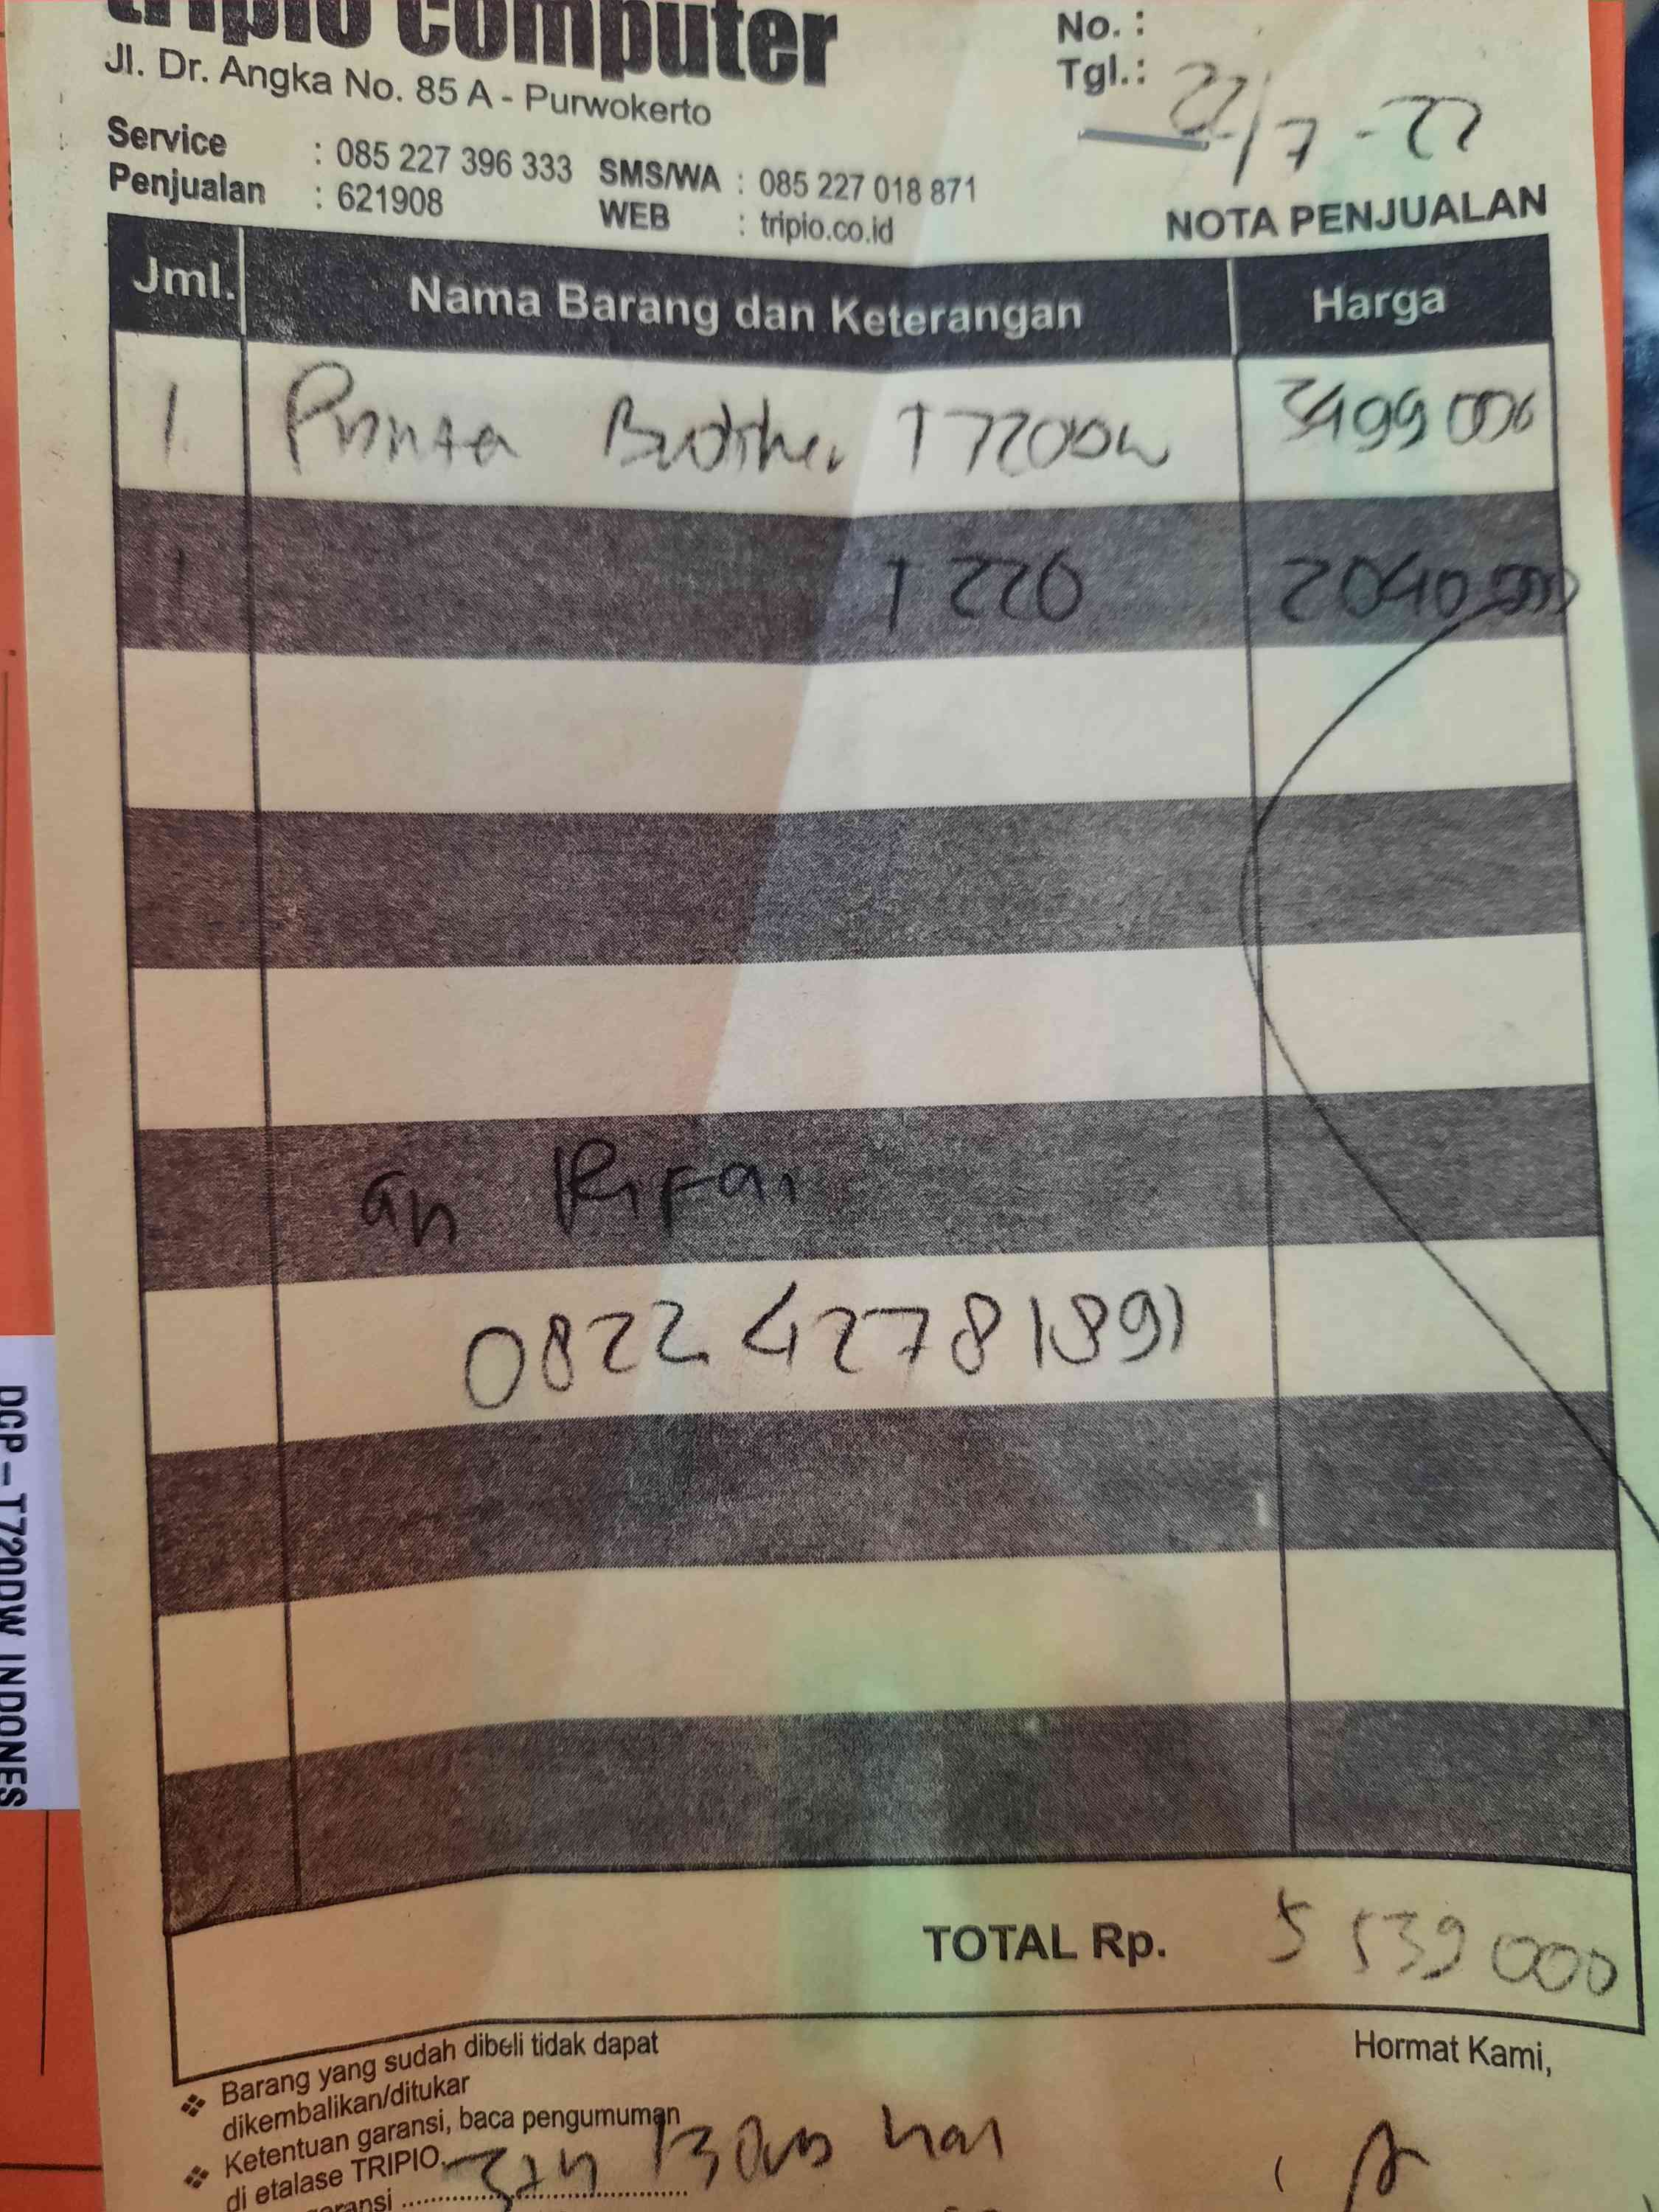 tripio computer
Jl. Dr. Angka No. 85 A - Purwokerto
Service : 085 227 396 333 SMS/WA : 085 227 018 871
Penjualan : 621908 WEB : tripio.co.id
No. :
Tgl.: 22/7-22
NOTA PENJUALAN
Jml. Nama Barang dan Keterangan Harga
1 Printer Brother T720DW 3499 000
1 T 220 2040 000
an Rifai
0822 42781891
TOTAL Rp. 5 539 000
Barang yang sudah dibeli tidak dapat
dikembalikan/ditukar
Ketentuan garansi, baca pengumuman
di etalase TRIPIO.
Hormat Kami,
DCP-T720DW INDONES